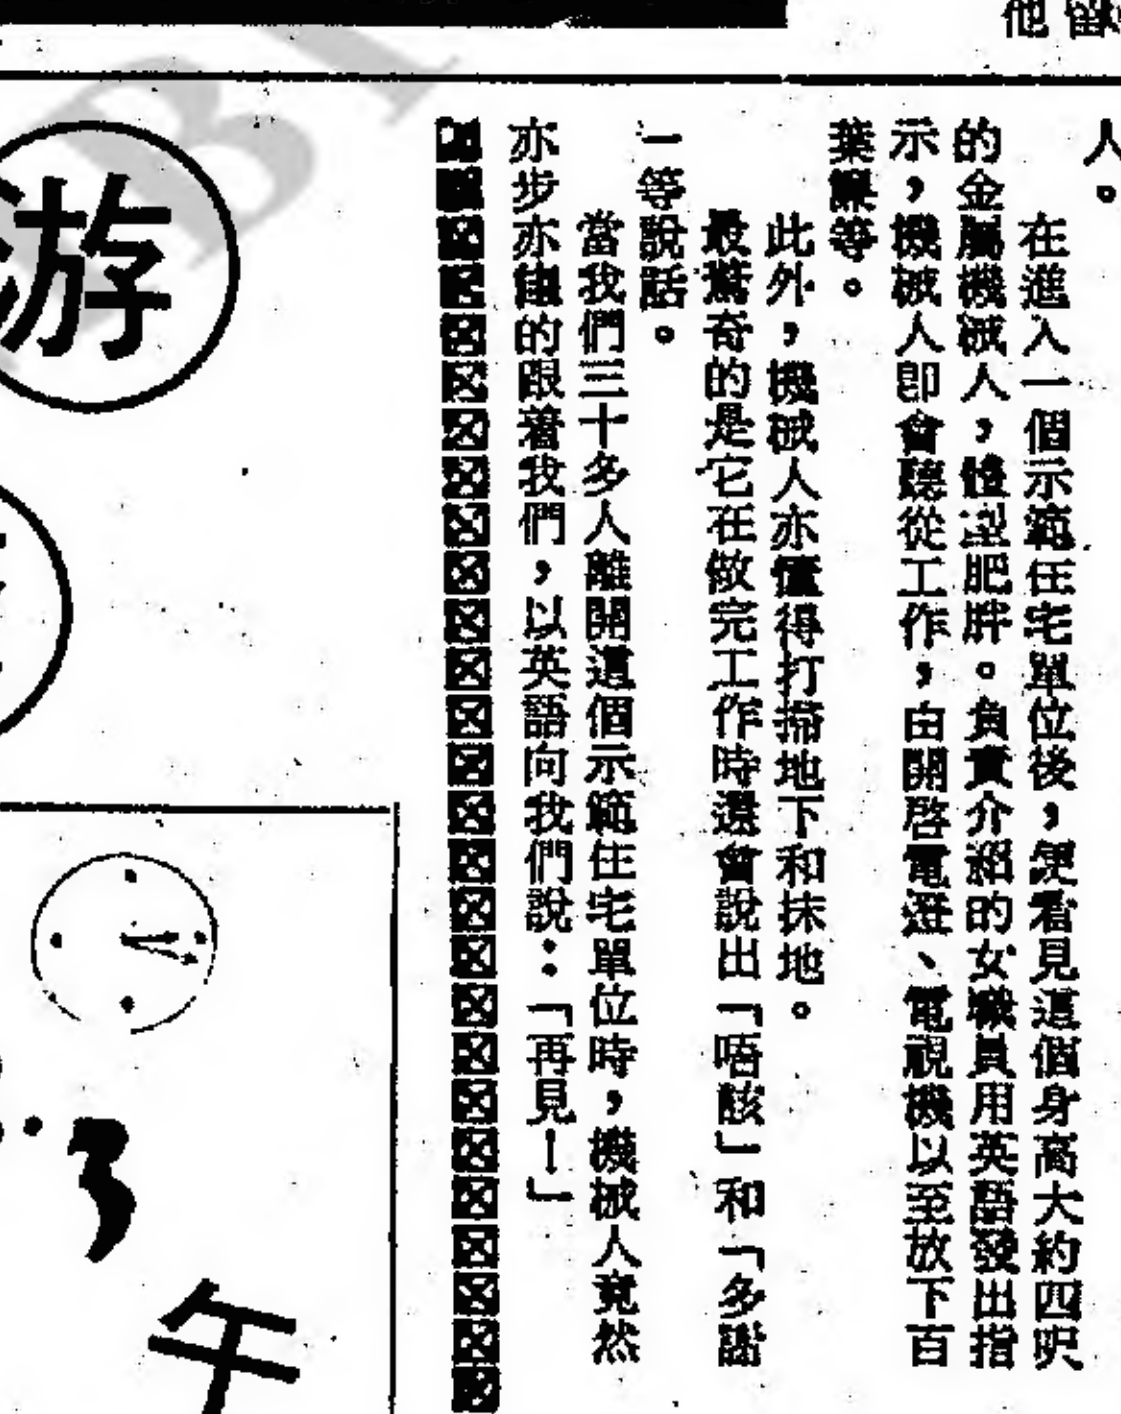 他留
人。
在進入一個示範住宅單位後，便看見這個身高大約四呎
的金屬機械人，體型肥胖。負責介紹的女職員用英語發出指
示，機械人即會聽從工作，由開啓電燈、電視機以至放下百
葉簾等。
此外，機械人亦懂得打掃地下和抹地。
最驚奇的是它在做完工作時還會說出「唔該」和「多謝
」等說話。
當我們三十多人離開這個示範住宅單位時，機械人竟然
亦步亦趨的跟着我們，以英語向我們說：「再見！」
游
3
午